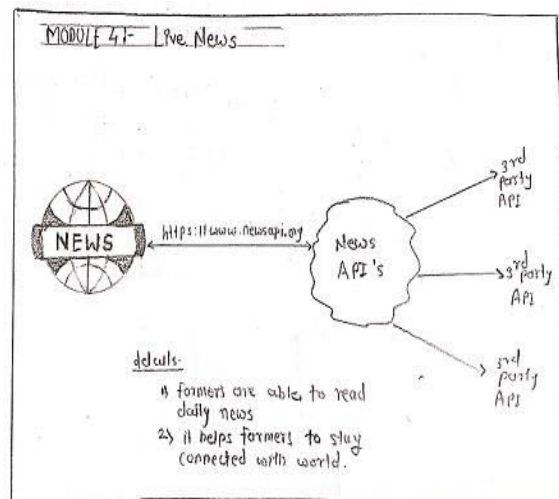 MODULE 4:- Live News
NEWS
https://www.newsapi.org
News
API's
3rd
party
API
3rd party
API
3rd
party
API
details-
1) formers are able to read
daily news
2) it helps formers to stay
connected with world.